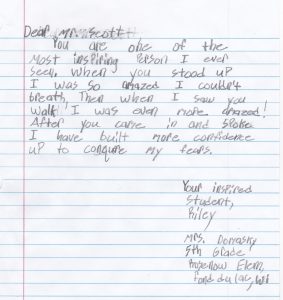 Dear Mr. Scott
You are one of the
most inspiring person I ever
seen. When you stood up
I was so amazed I couldn't
breath, Then when I saw you
walk I was even more amazed!
After you came in and spoke
I have built more confidence
up to conqure my fears.
Your inspired
student,
Riley
Mrs.
5th Grade
Elem.
Fond du lac, Wi